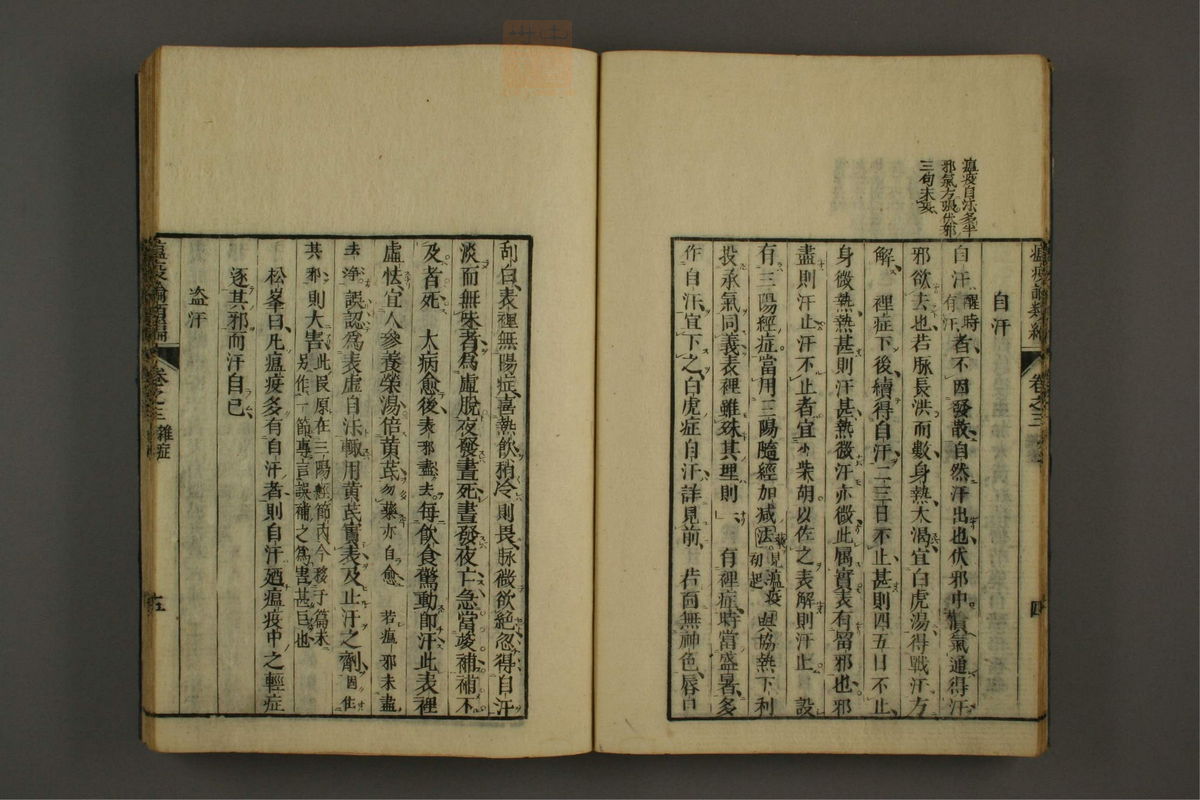 瘟疫自汗多半
邪氣方張伏邪
三旬未妥
瘟疫論類編
卷之三
四
自汗
自汗醒時有汗者不因發散自然汗出也伏邪中憤氣通得汗
邪欲去也若脈長洪而數身熱大渴宜白虎湯得戰汗方
解　裡症下後續得自汗二三日不止甚則四五日不止
身微熱熱甚則汗甚熱微汗亦微此属實表有留邪也邪
盡則汗止汗不止者宜小柴胡以佐之表解則汗止　設
有三陽經症當用三陽隨經加减法見瘟疫初起與協熱下利
投承氣同義表裡雖殊其理則　有裡症時當盛暑多
作自汗宜下之白虎症自汗詳見前　若面無神色唇口
刮白表裡無陽症喜熱飲稍冷則畏脈微欲絕忽得自汗
淡而無味者為虛脫夜發晝死晝發夜亡急當峻補補不
及者死　大病愈後表邪盡去每飲食驚動卽汗此表裡
虛怯宜人參養榮湯倍黄芪勿藥亦自愈　若瘟邪未盡
去净誤認爲表虛自汗輙用黄芪實表及止汗之劑因住
其邪則大害此段原在三陽經節內今移于篇末另作一節專言誤補之爲害甚巨也
松峯曰凡瘟疫多有自汗者則自汗廼瘟疫中之輕症
逐其邪而汗自已
盜汗
瘟疫論類編
卷之三
雜症
五